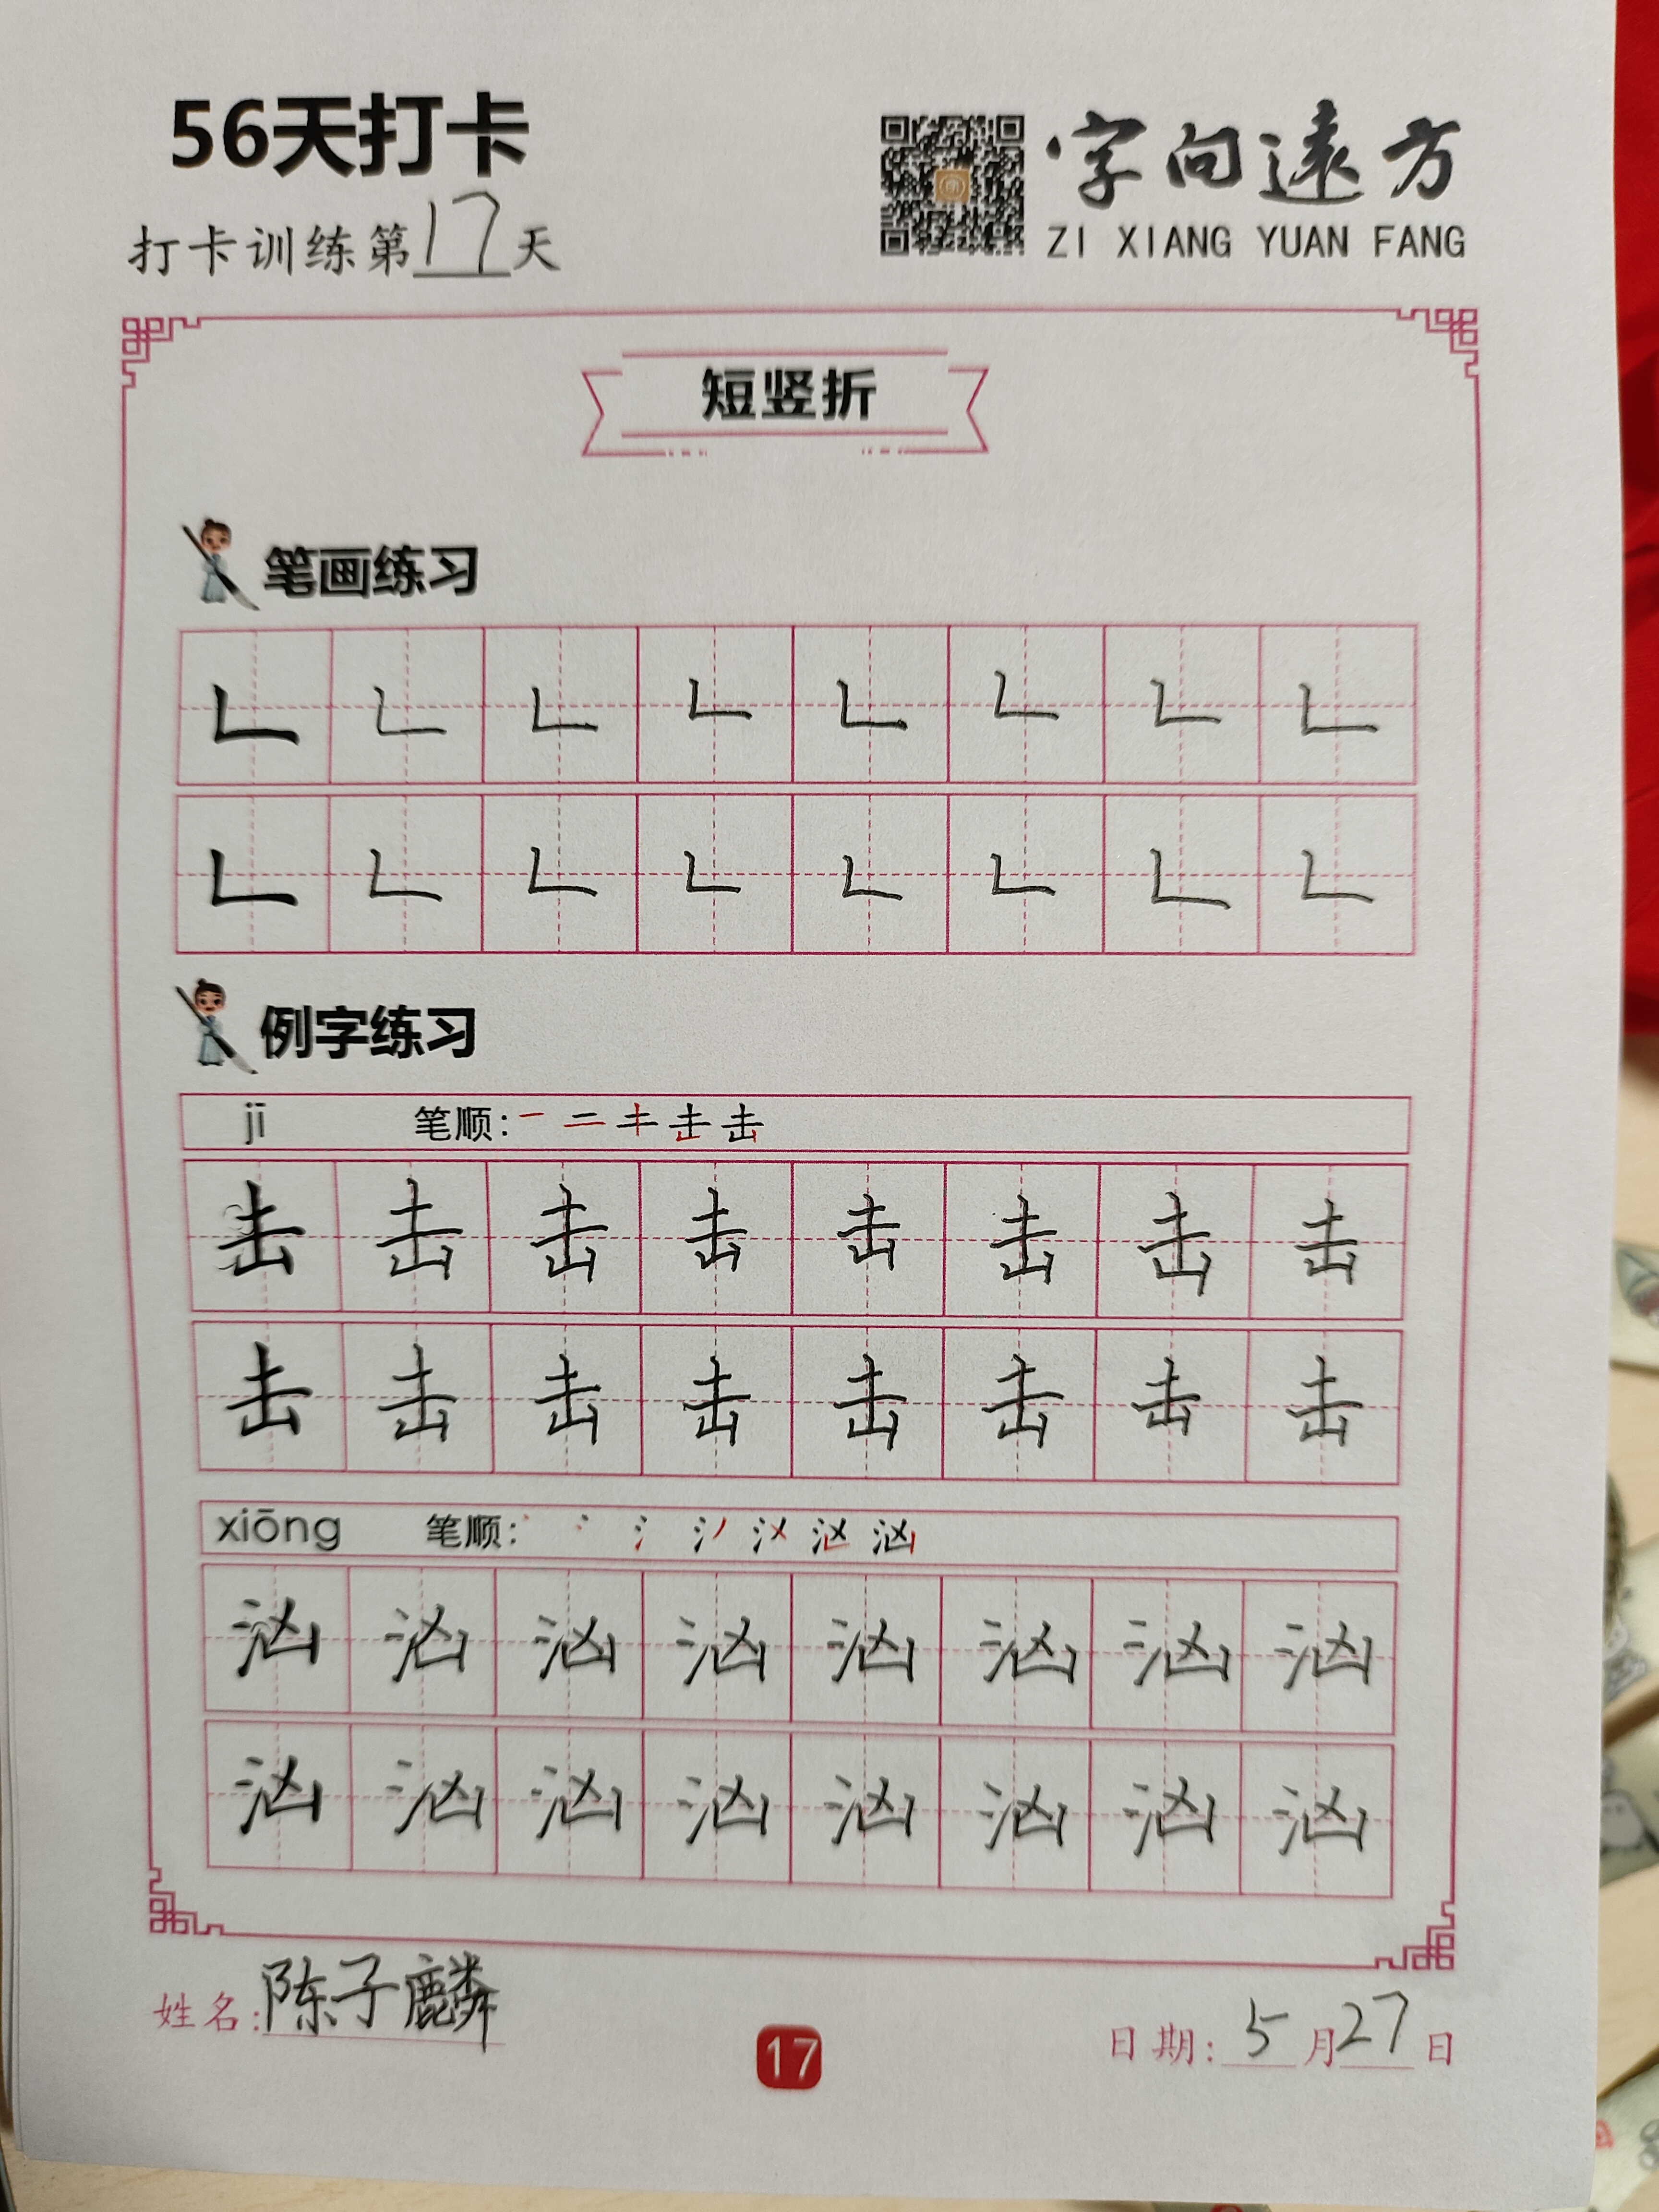 56天打卡
打卡训练第17天
字向遠方
ZI XIANG YUAN FANG
短竖折
笔画练习
𠃊 𠃊 𠃊 𠃊 𠃊 𠃊 𠃊 𠃊
𠃊 𠃊 𠃊 𠃊 𠃊 𠃊 𠃊 𠃊
例字练习
jī 笔顺:
击 击 击 击 击 击 击 击
击 击 击 击 击 击 击 击
xiōng 笔顺:
汹 汹 汹 汹 汹 汹 汹 汹
汹 汹 汹 汹 汹 汹 汹 汹
姓名:陈子麟
17
日期:5月27日